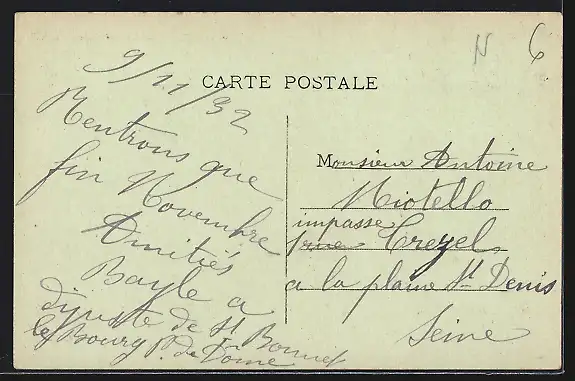 CARTE POSTALE
N 6
9/11/32
Rentrons que
fin Novembre
Amitiés
Bayle a
de St Bonnet
le Bourg P. de Dome
Monsieur Antoine
Niotello
impasse
1 rue Crezel
a la plaine St Denis
Seine